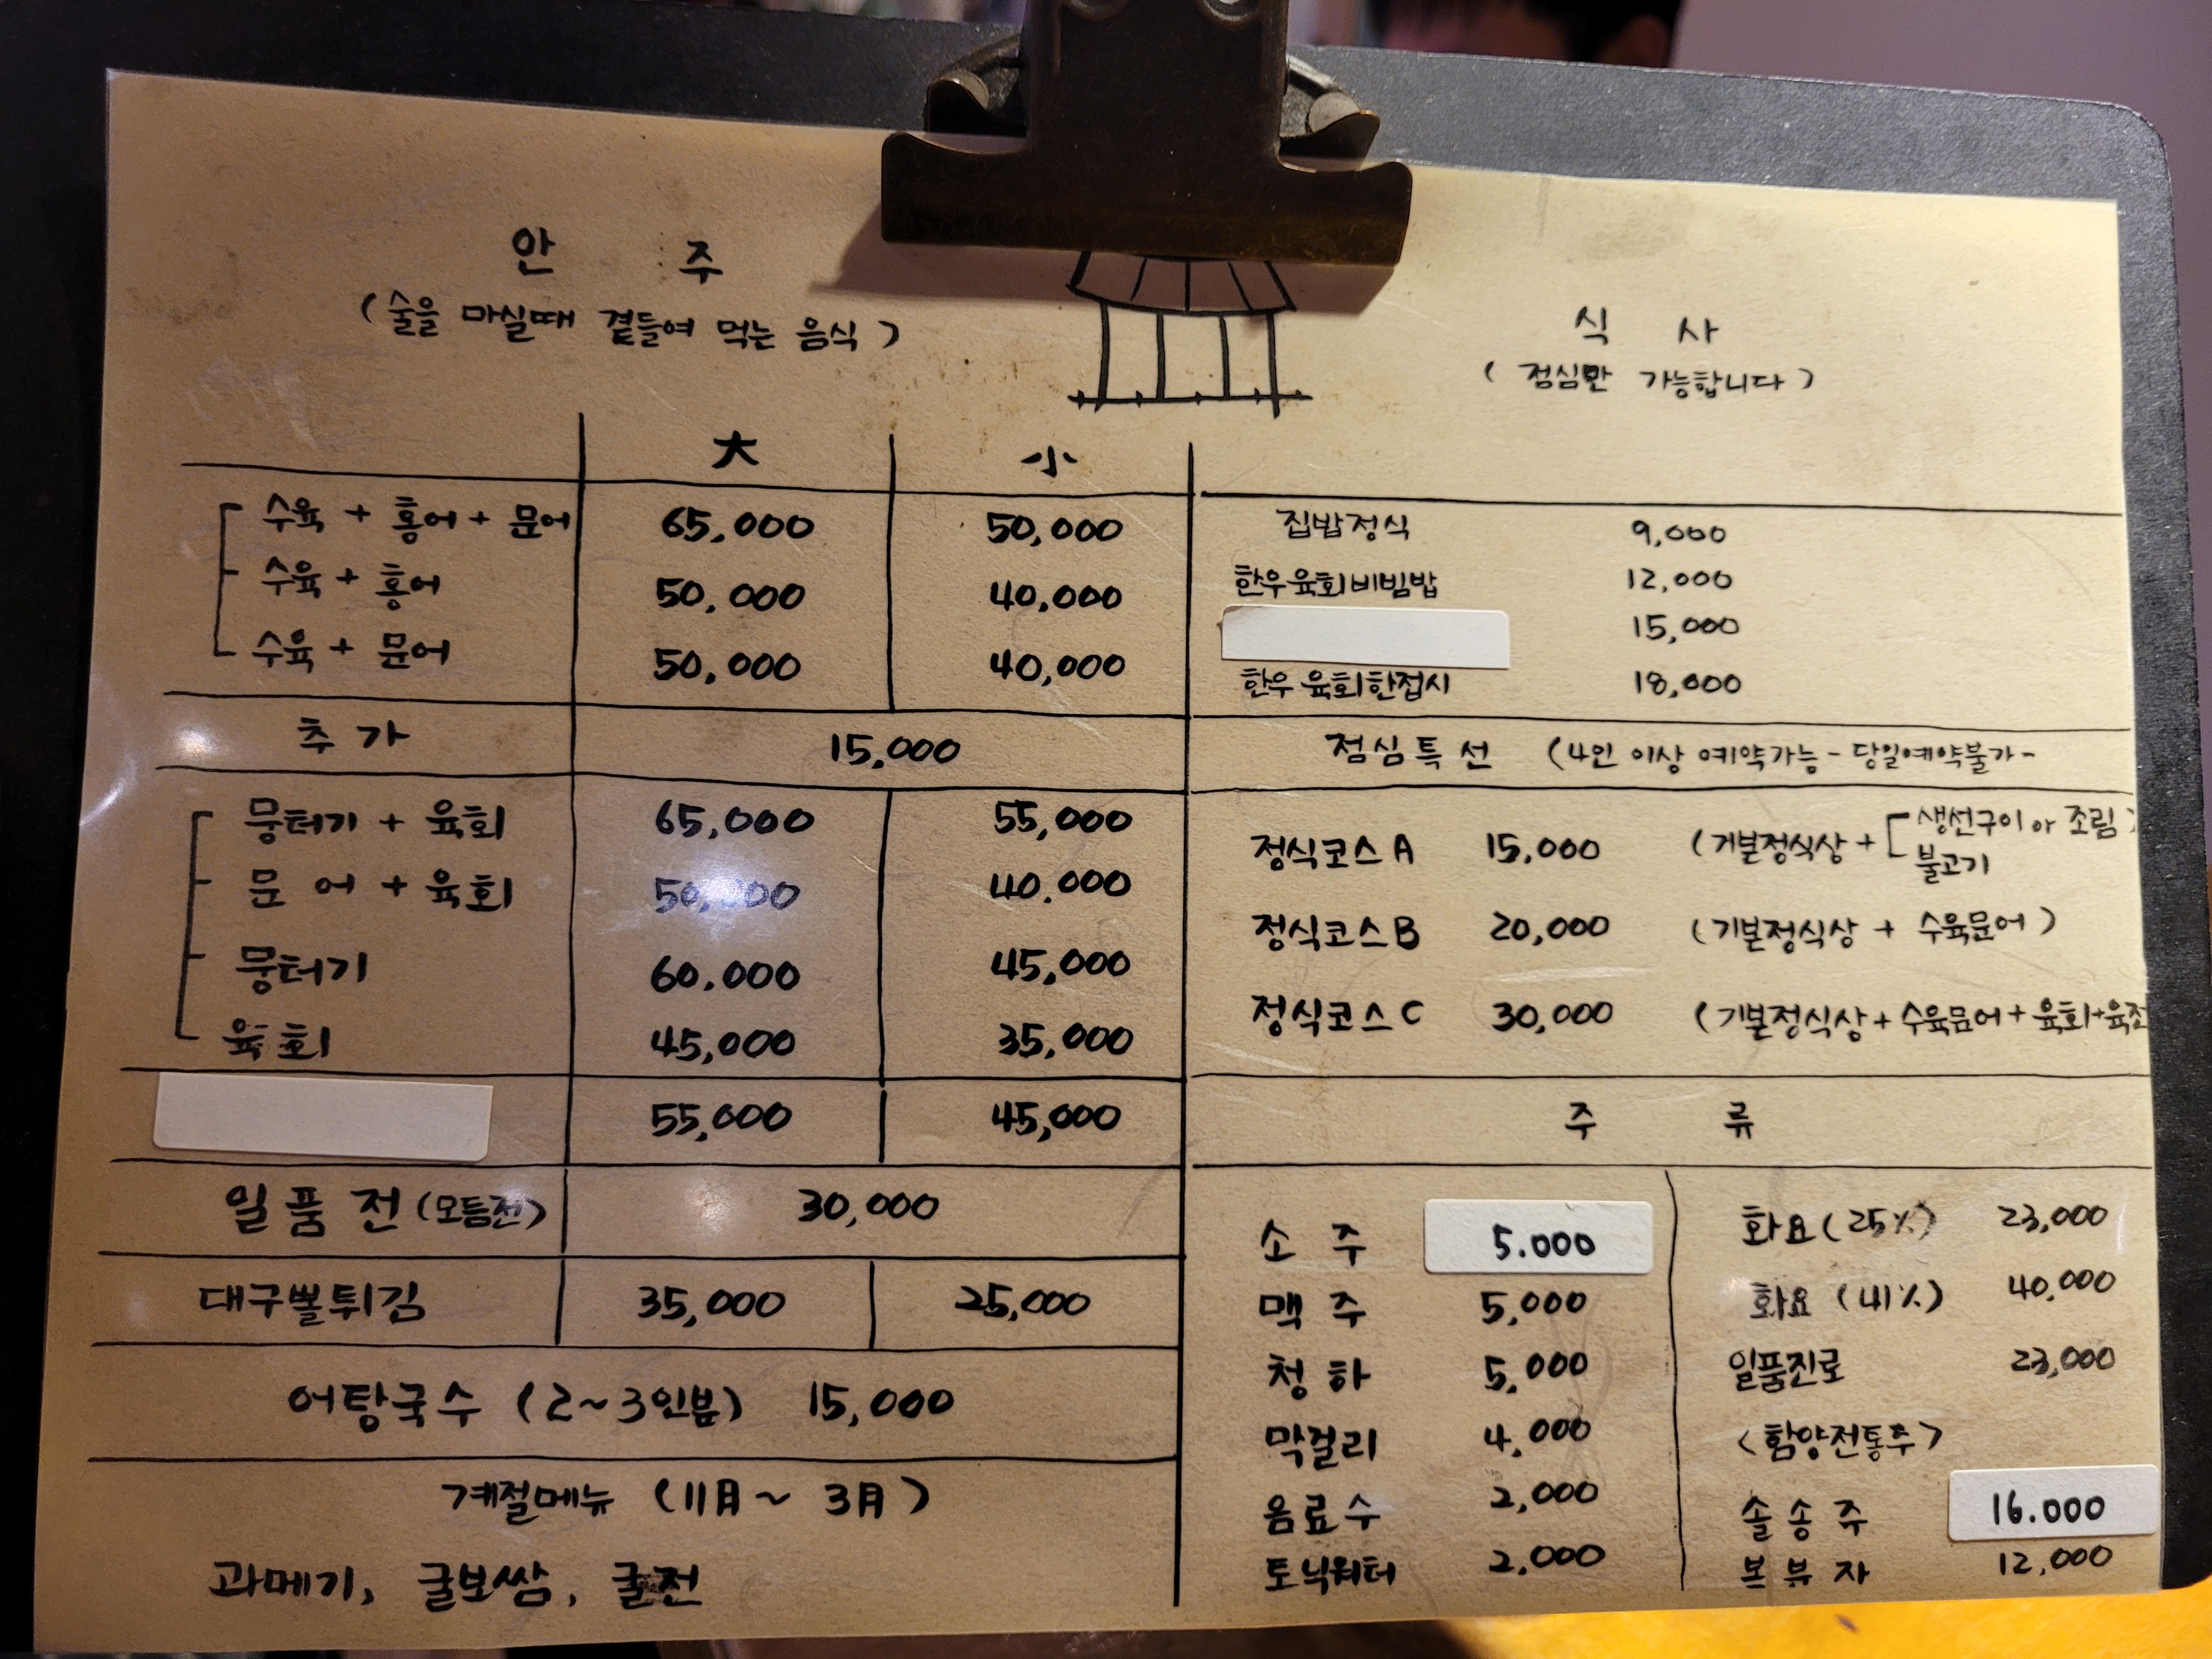 안 주
(술을 마실때 곁들여 먹는 음식)
大 小
수육 + 홍어 + 문어 65,000 50,000
수육 + 홍어 50,000 40,000
수육 + 문어 50,000 40,000
추 가 15,000
뭉터기 + 육회 65,000 55,000
문 어 + 육회 50,000 40.000
뭉터기 60.000 45,000
육회 45,000 35,000
55,000 45,000
일 품 전 (모듬전) 30,000
대구뽈튀김 35,000 25,000
어탕국수 (2~3인분) 15,000
계절메뉴 (11月 ~ 3月)
과메기, 굴보쌈, 굴전
식 사
(점심만 가능합니다)
집밥정식 9,000
한우육회비빔밥 12,000
15,000
한우 육회한접시 18,000
점심특선 (4인 이상 예약가능 - 당일예약불가 -
정식코스 A 15,000 (기본정식상 + 생선구이 or 조림)
불고기
정식코스 B 20,000 (기본정식상 + 수육문어)
정식코스 C 30,000 (기본정식상 + 수육문어 + 육회+육전
주 류
소 주 5.000
맥 주 5,000
청 하 5,000
막걸리 4,000
음료수 2,000
토닉워터 2,000
화요 (25%) 23,000
화요 (41%) 40,000
일품진로 23,000
<함양전통주>
솔 송 주 16.000
복 분 자 12,000